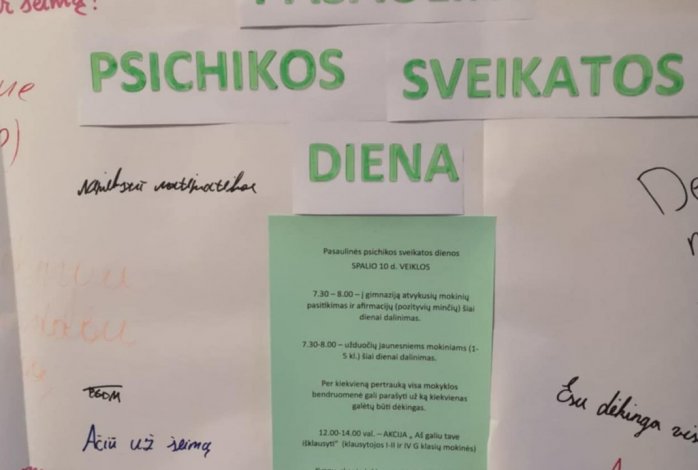 šeimą!
PASAULINĖ
PSICHIKOS SVEIKATOS
DIENA
Pasaulinės psichikos sveikatos dienos
SPALIO 10 d. VEIKLOS
7.30 – 8.00 – į gimnaziją atvykusių mokinių
pasitikimas ir afirmacijų (pozityvių minčių) šiai
dienai dalinimas.
7.30-8.00 – užduočių jaunesniems mokiniams (1-
5 kl.) šiai dienai dalinimas.
Per kiekvieną pertrauką visa mokyklos
bendruomenė gali parašyti už ką kiekvienas
galėtų būti dėkingas.
12.00-14.00 val. – AKCIJA „ Aš galiu tave
išklausyti" (klausytojos I-II ir IV G klasių mokinės)
Ačiū už šeimą
Esu dėkinga